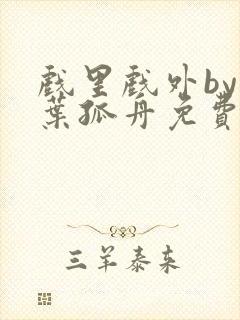 戲里戲外by
葉孤丹免費
三羊泰来